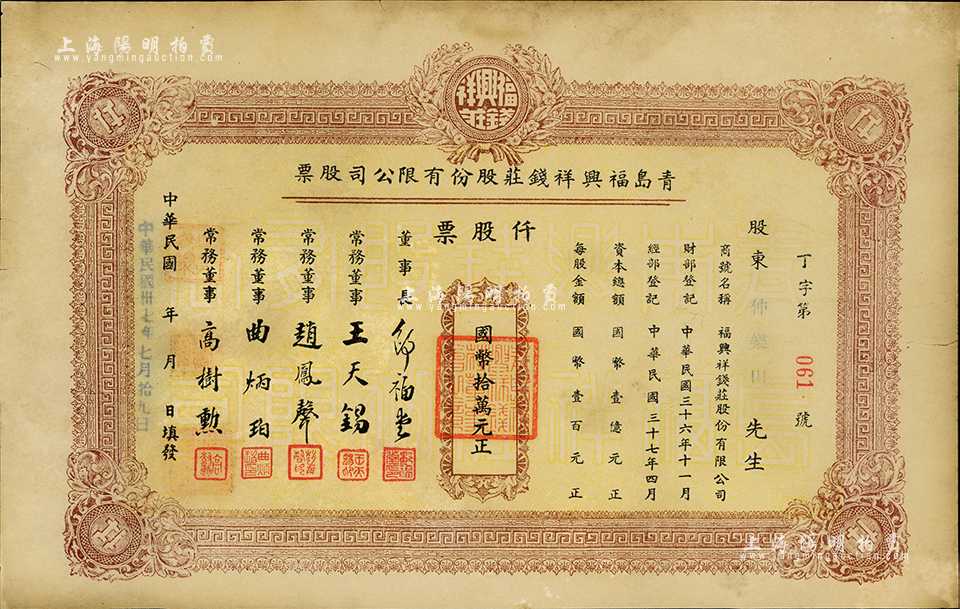 上海陽明拍賣
www.yangmingauction.com
福興祥錢莊
仟
仟
青島福興祥錢莊股份有限公司股票
仟股票
丁字第 061 號
股東 仲樂山 先生
商號名稱 福興祥錢莊股份有限公司
財部登記 中華民國三十六年十一月
經部登記 中華民國三十七年四月
資本總額 國幣壹億元正
每股金額 國幣壹百元正
國幣拾萬元正
董事長
常務董事 王天錫
常務董事 趙鳳聲
常務董事 曲炳珀
常務董事 高樹勲
中華民國 年 月 日填發
中華民國卅七年七月拾九日
上海陽明拍賣
www.yangmingauction.com
仟
仟
上海陽明拍賣
www.yangmingauction.com